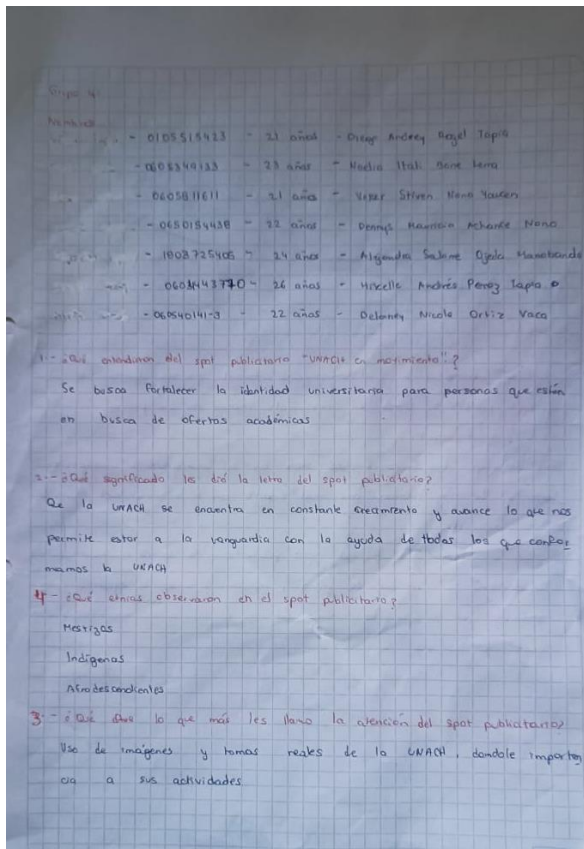 Grupo 4
Nombres
- 0105515423 - 21 años - Diego Andrey Angel Tapia
- 0605349133 - 23 años - Itali
- 0605811611 - 21 años - Stiven Nono
- 0650154438 - 22 años - Dennys Mauricio Nono
- 1808725405 - 24 años - Alejandra
- 26 años - Andrés Peroz Tapia
- 060540141-3 - 22 años - Delaney Nicole Ortiz Vaca
1.- ¿Qué entendieron del spot publicitario "UNACH en movimiento"?
Se busca fortalecer la identidad universitaria para personas que están
en busca de ofertas académicas
2.- ¿Qué significado les dió la letra del spot publicitario?
Qe la UNACH se encuentra en constante creamiento y avance lo que nos
permite estar a la vanguardia con la ayuda de todos los que confor
mamos la UNACH
4- ¿Qué etnias observaron en el spot publicitario?
Mestizas
Indígenas
Afrodescendientes
3.- ¿Qué lo que más les llamo la atención del spot publicitario?
Uso de imágenes y tomas reales de la UNACH, dandole importan
cia a sus actividades